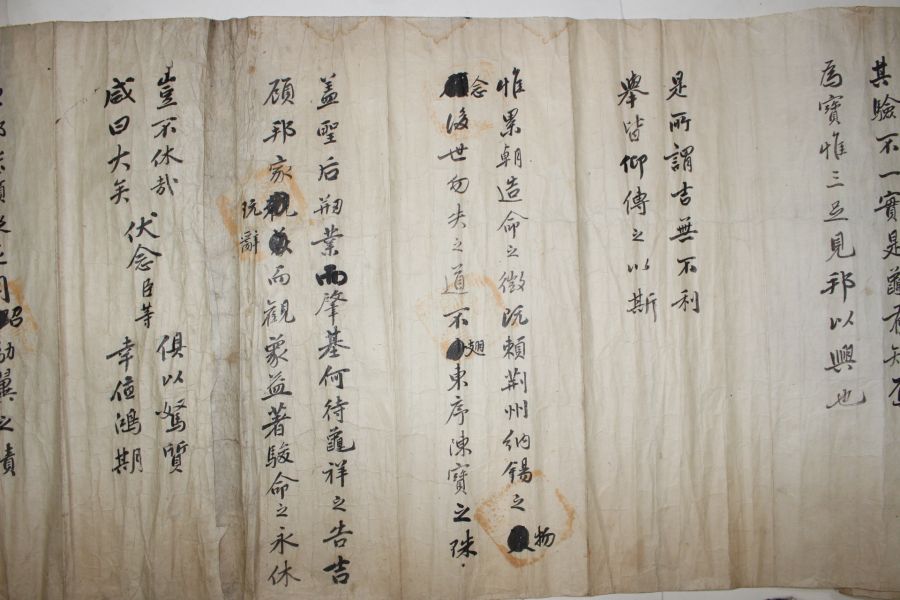 其驗不一實是龜有知
爲寶惟三足見邦以興也
是所謂吉無不利
舉皆仰傳之以斯
惟累朝造命之徵旣賴荊州納錫之物
念後世勿失之道不翅東序陳寶之珠
蓋聖后刱業而肇基何待龜祥之告吉
顧邦家玩辭而觀象益著駿命之永休
豈不休哉
咸曰大矣
伏念臣等
俱以駑質
幸値鴻期